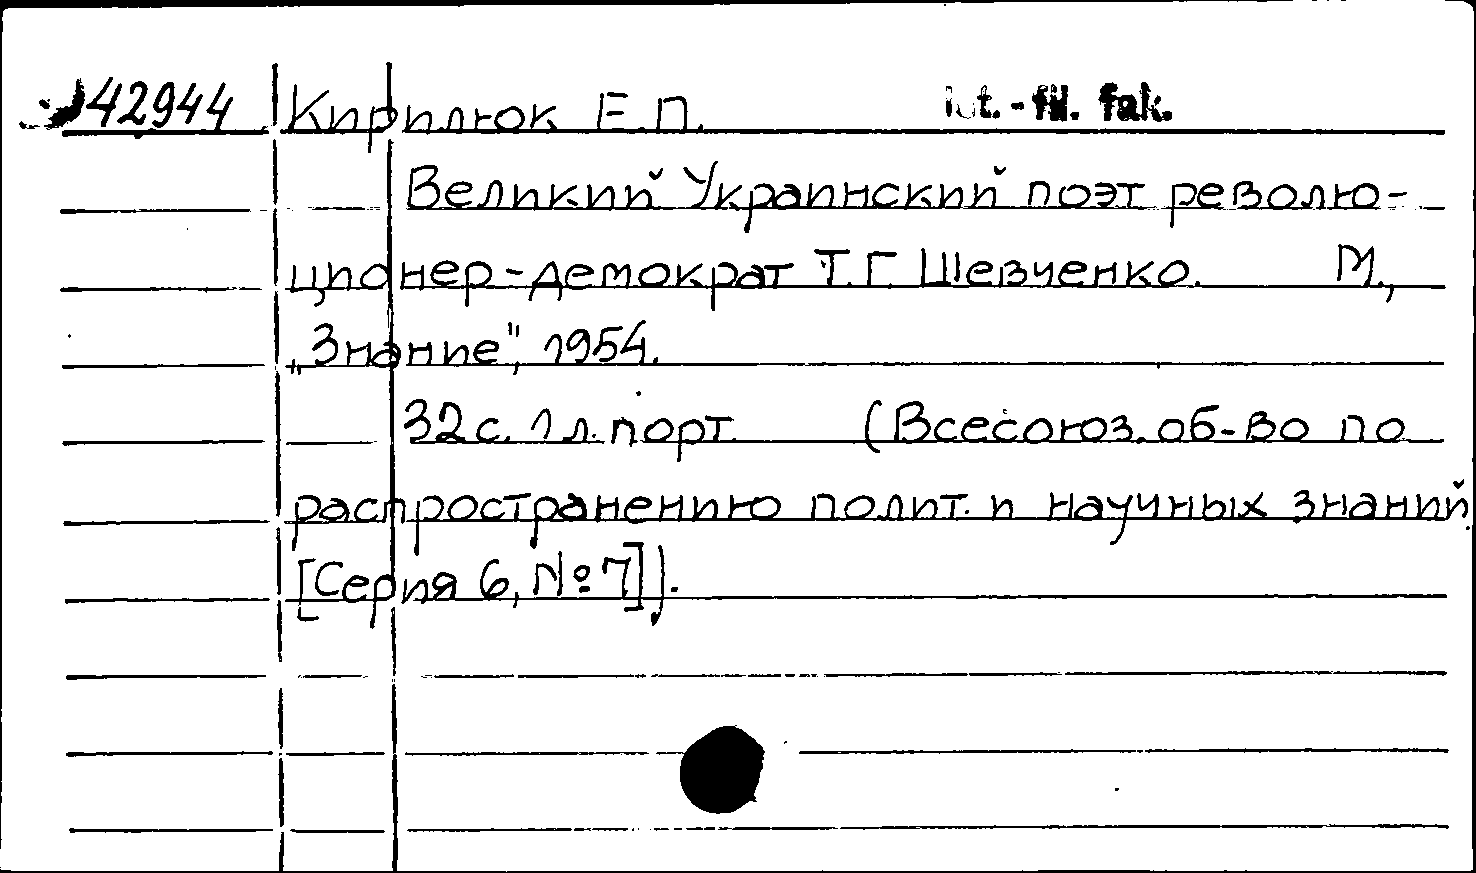 42944 Кирилюк Е.П. ist.-fil. fak.
Великий Украинский поэт револю-
ционер-демократ Т.Г. Шевченко. М.,
„Знание", 1954.
32 с. 1 л. порт. (Всесоюз. об-во по
распространению полит. и научных знаний
[Серия 6, № 7]).